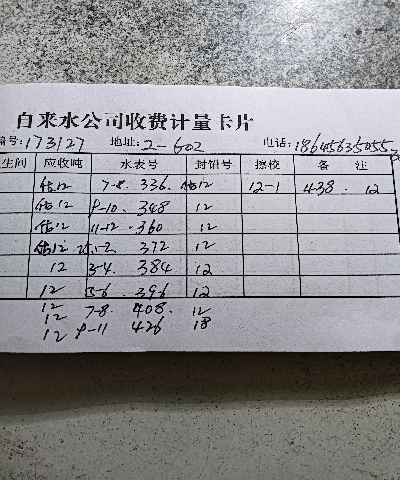 自来水公司收费计量卡片
编号:173127 地址:2-602 电话:18645635055
生间 应收吨 水表号 封铅号 擦校 备 注
估12 7-8. 336. 估12 12-1 438. 12
估12 9-10. 348 12
估12 11-12. 360 12
估12 1-2 372 12
12 3-4. 384 12
12 5-6 396 12
12 7-8. 408. 12
12 9-11 426 18